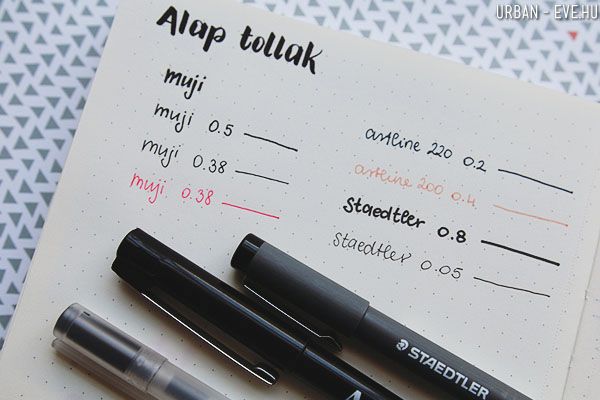 URBAN - EVE.HU
Alap tollak
muji
muji 0.5
muji 0.38
muji 0.38
artline 220 0.2
artline 200 0.4
Staedtler 0.8
Staedtler 0.05
STAEDTLER